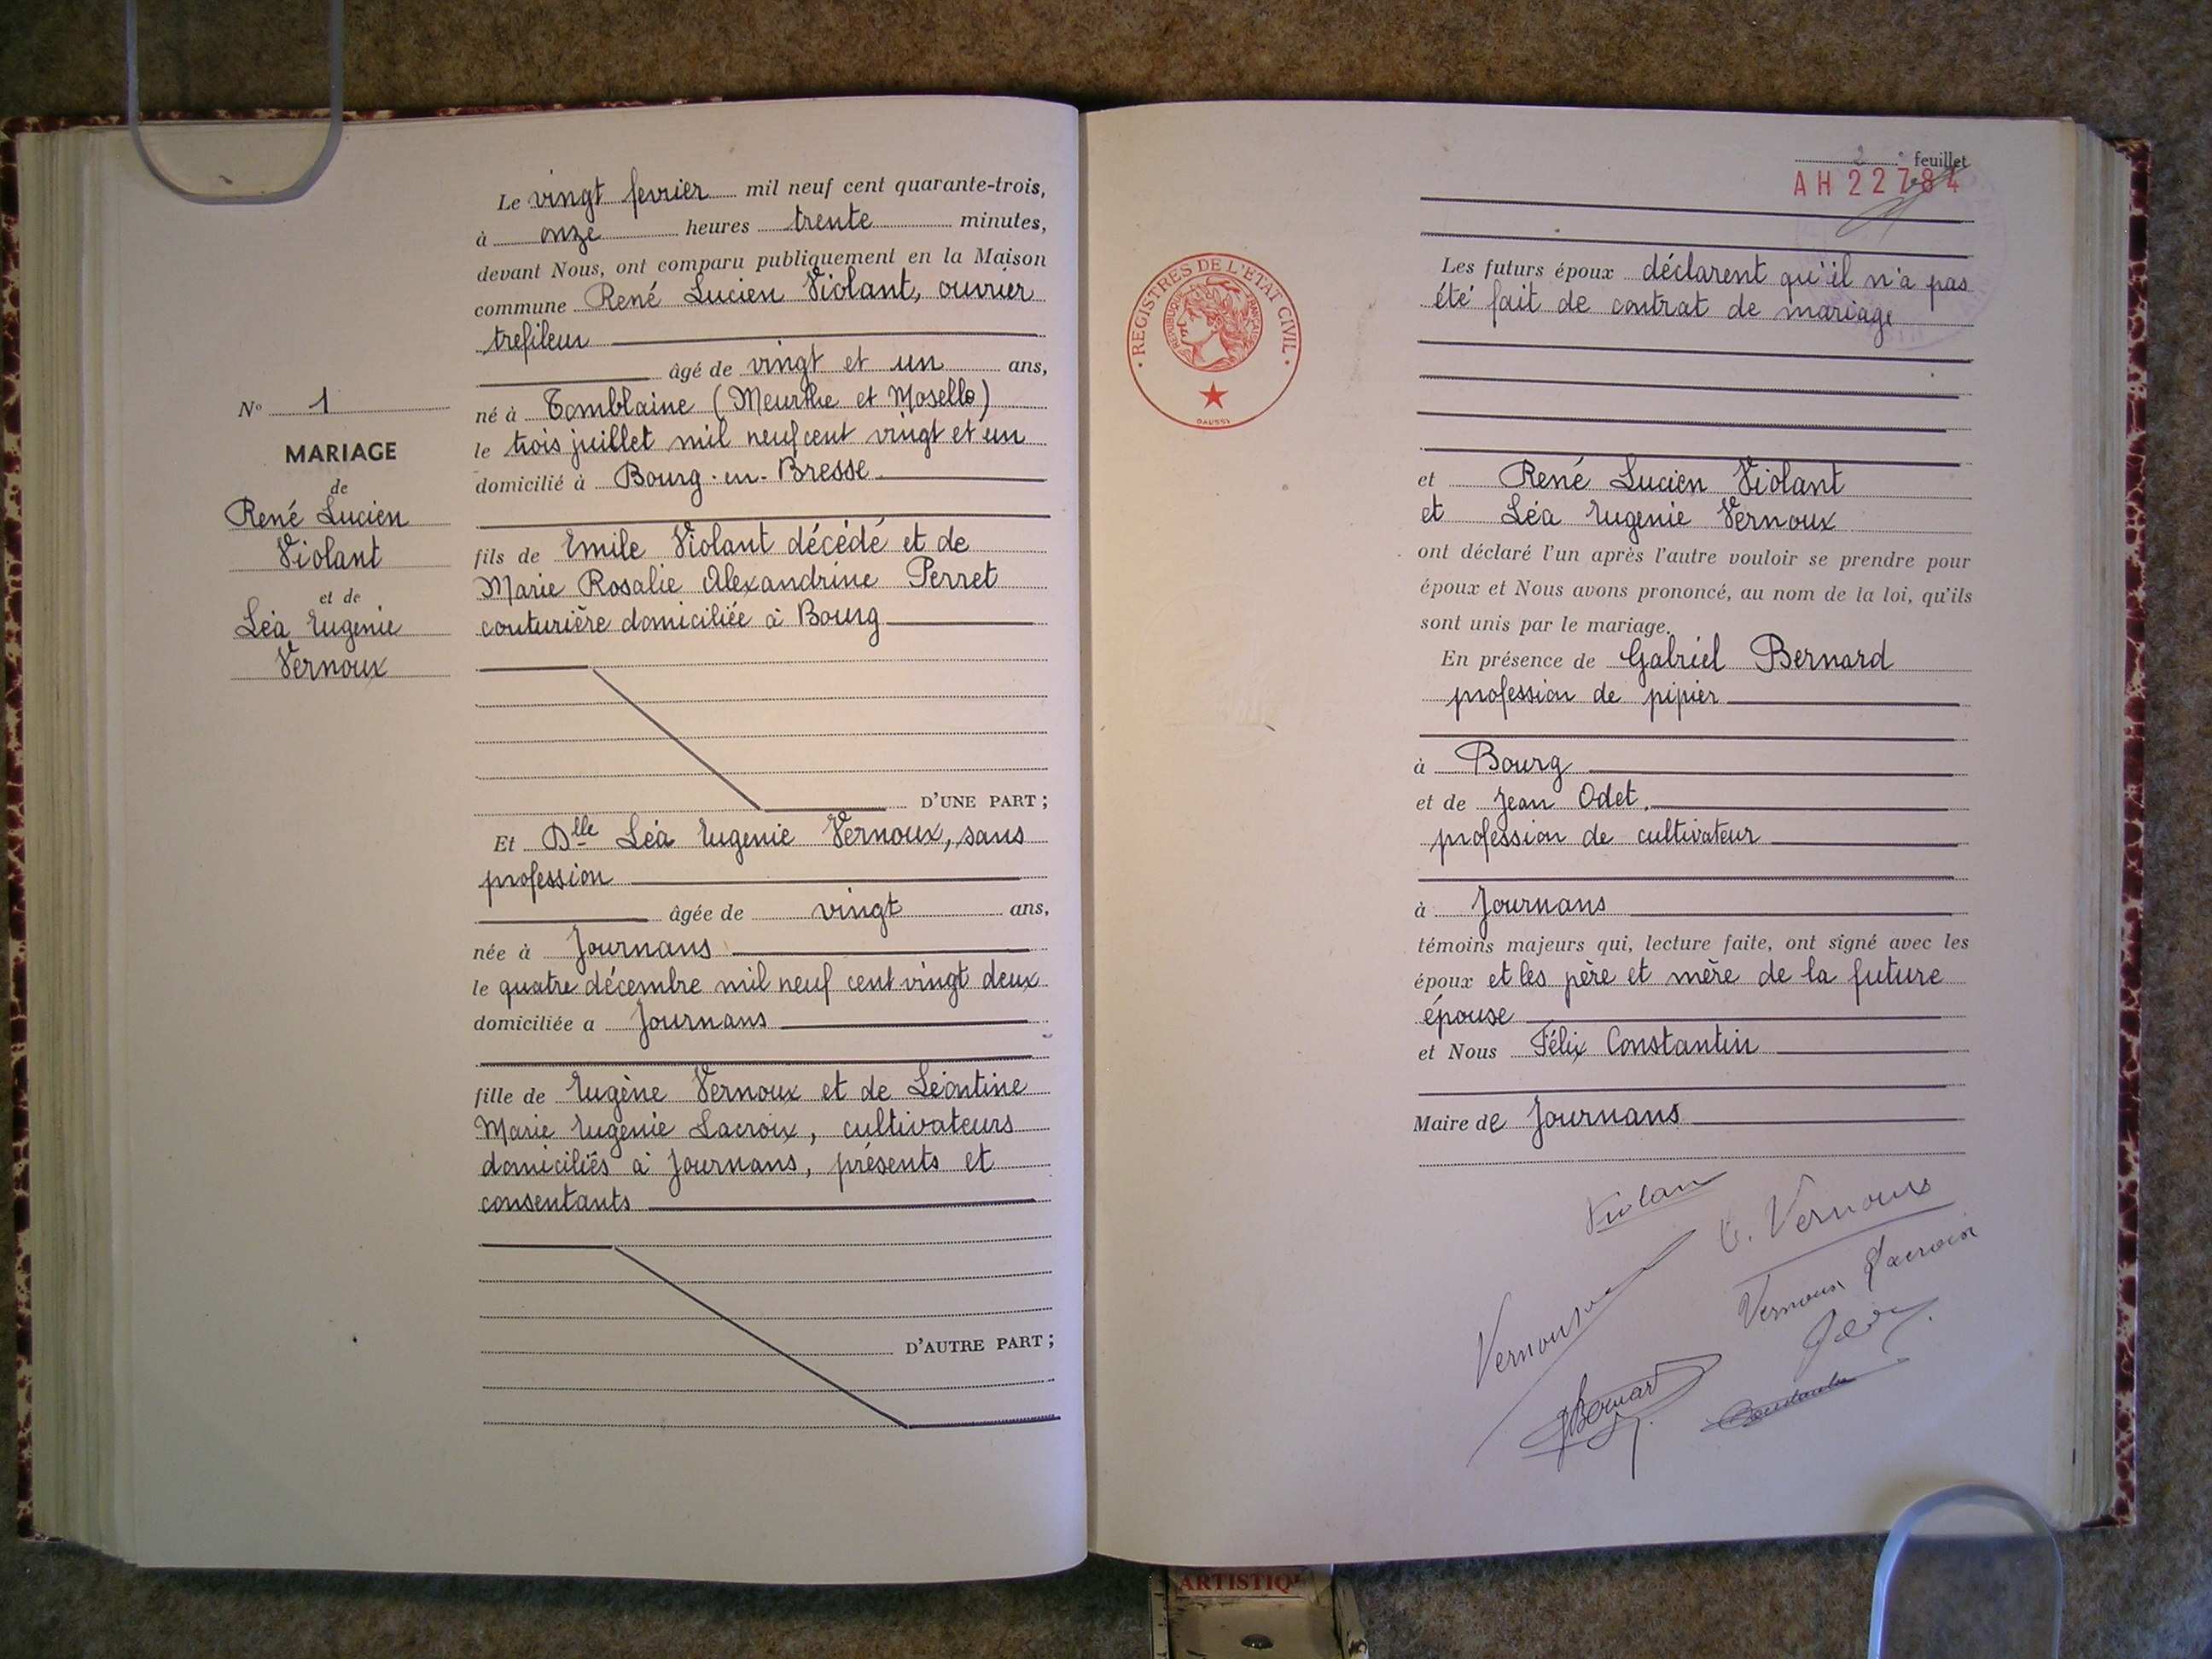 Le vingt fevrier mil neuf cent quarante-trois,
à onze heures trente minutes,
devant Nous, ont comparu publiquement en la Maison
commune René Lucien Violant, ouvrier
trefileur
âgé de vingt et un ans,
né à Tomblaine (Meurthe et Moselle)
le trois juillet mil neuf cent vingt et un
domicilié à Bourg-en-Bresse
fils de Emile Violant décédé et de
Marie Rosalie Alexandrine Perret
couturière domiciliée à Bourg
D'UNE PART ;
Et Dlle Léa Eugenie Vernoux, sans
profession
âgée de vingt ans,
née à Journans
le quatre décembre mil neuf cent vingt deux
domiciliée a Journans
fille de Eugène Vernoux et de Léontine
Marie Eugenie Lacroix, cultivateurs
domiciliés à Journans, présents et
consentants
D'AUTRE PART ;
No 1
MARIAGE
de
René Lucien
Violant
et de
Léa Eugenie
Vernoux
2 e feuillet
AH 22784
REGISTRES DE L'ETAT CIVIL
REPUBLIQUE FRANÇAISE
DAUSSY
Les futurs époux déclarent qu'il n'a pas
été fait de contrat de mariage
et René Lucien Violant
et Léa Eugenie Vernoux
ont déclaré l'un après l'autre vouloir se prendre pour
époux et Nous avons prononcé, au nom de la loi, qu'ils
sont unis par le mariage.
En présence de Gabriel Bernard
profession de pipier
à Bourg
et de Jean Odet.
profession de cultivateur
à Journans
témoins majeurs qui, lecture faite, ont signé avec les
époux et les père et mère de la future
épouse
et Nous Félix Constantin
Maire de Journans
Violan
E. Vernoux
Vernoux
Vernoux Lacroix
Bernard
ARTISTIQ